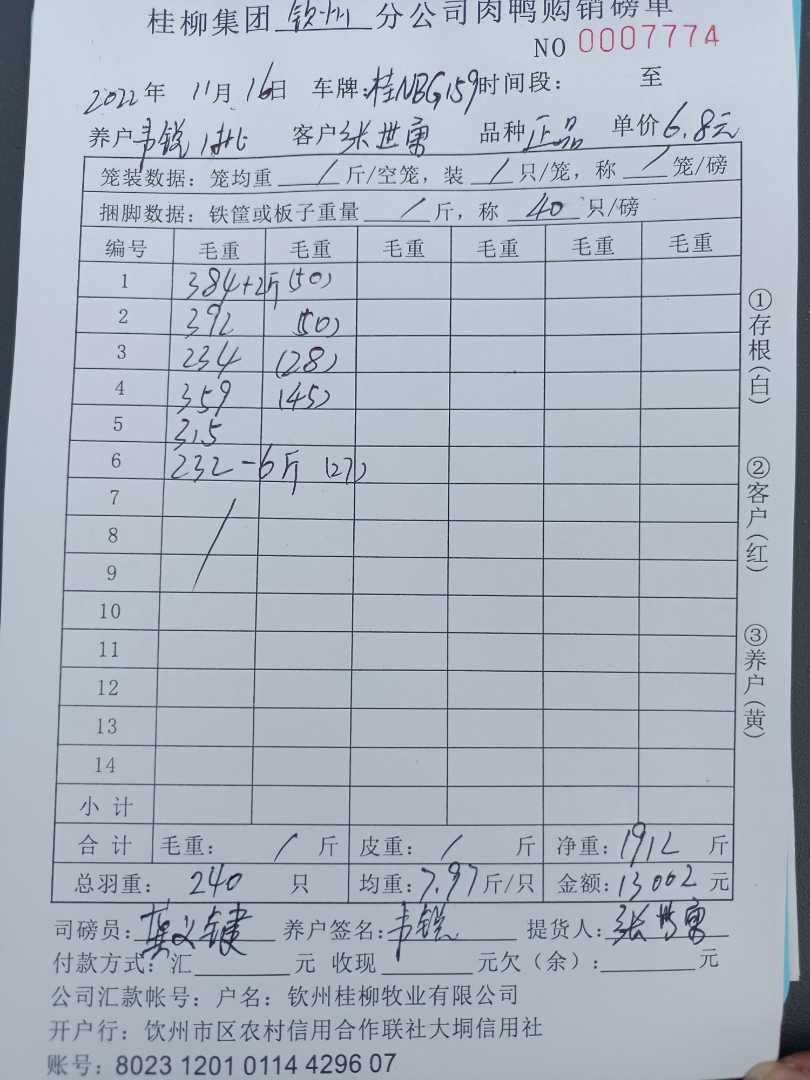 桂柳集团 钦州 分公司肉鸭购销磅单
NO 0007774
2022年 11月16日 车牌:桂NBG159 时间段: 至
养户 韦锐 1批 客户 张世富 品种 正品 单价 6.8元
笼装数据: 笼均重 / 斤/空笼, 装 / 只/笼, 称 / 笼/磅
捆脚数据: 铁筐或板子重量 / 斤, 称 40 只/磅
编号 毛重 毛重 毛重 毛重 毛重 毛重
1 384+2斤 (50)
2 392 (50)
3 234 (28)
4 359 (45)
5 315
6 232-6斤 (27)
7 /
8
9
10
11
12
13
14
小计
合计 毛重: / 斤 皮重: / 斤 净重: 1912 斤
总羽重: 240 只 均重: 7.97 斤/只 金额: 13002 元
司磅员: 龚义键 养户签名: 韦锐 提货人: 张世富
付款方式: 汇 元 收现 元欠(余): 元
公司汇款帐号: 户名: 钦州桂柳牧业有限公司
开户行: 钦州市区农村信用合作联社大垌信用社
账号: 8023 1201 0114 4296 07
①存根(白)
②客户(红)
③养户(黄)